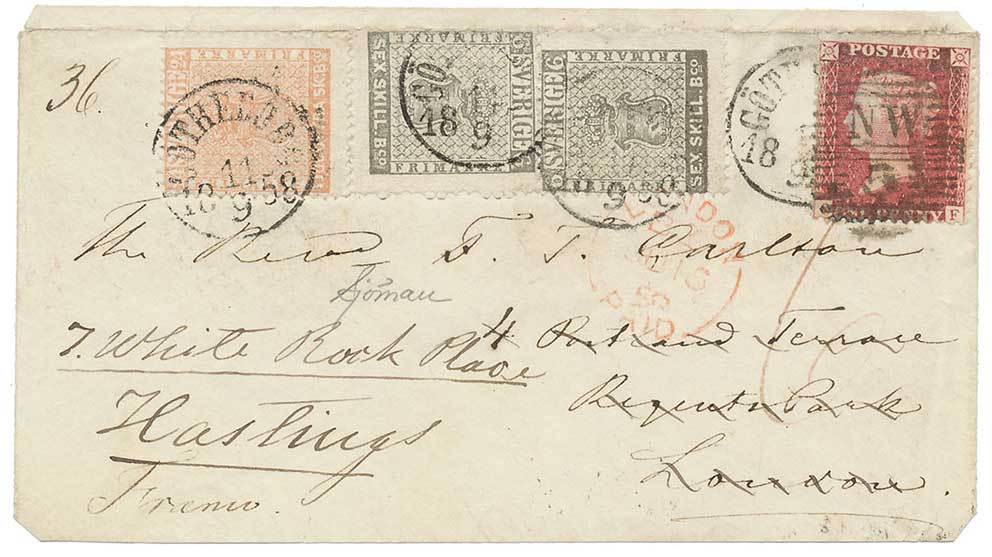 36.
SVERIGE
FRIMARKE
SEX SKILL. Bco
SVERIGE
FRIMARKE
SEX SKILL. Bco
SVERIGE
FRIMARKE
GÖTHEBORG
11
18 58
9
GÖ
18
9
9 58
GÖT
18
POSTAGE
NW
F
LONDON
PAID
The Revd F. T. Carlson
Sjöman
7. White Rock Place
4 Portland Terrace
Regents Park
London.
Hastings
Franco.